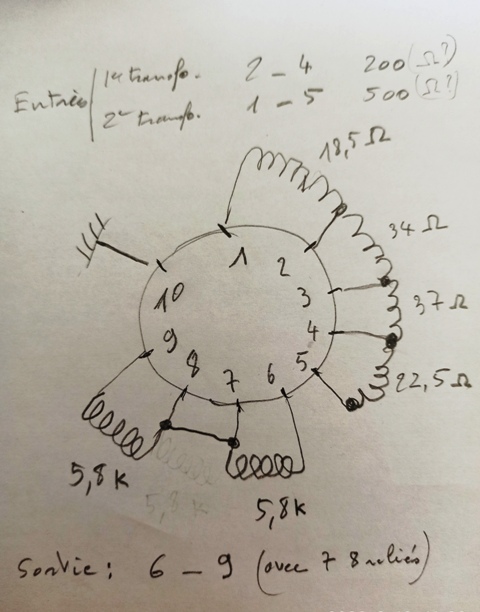 Entrées 1er transfo. 2 – 4 200 (Ω?)
2e transfo. 1 – 5 500 (Ω?)
18,5 Ω
34 Ω
37 Ω
22,5 Ω
1
2
3
4
5
6
7
8
9
10
5,8 K
5,8 K
5,8 K
Sortie : 6 – 9 (avec 7 8 reliés)